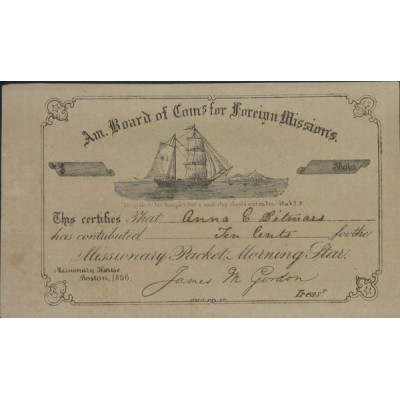 Am. Board of Coms for Foreign Missions.
Share.
This certifies That Anna E Ditmars
has contributed Ten Cents for the
Missionary Packet, Morning Star.
Missionary House
Boston, 1856.
James M. Gordon
Treasr